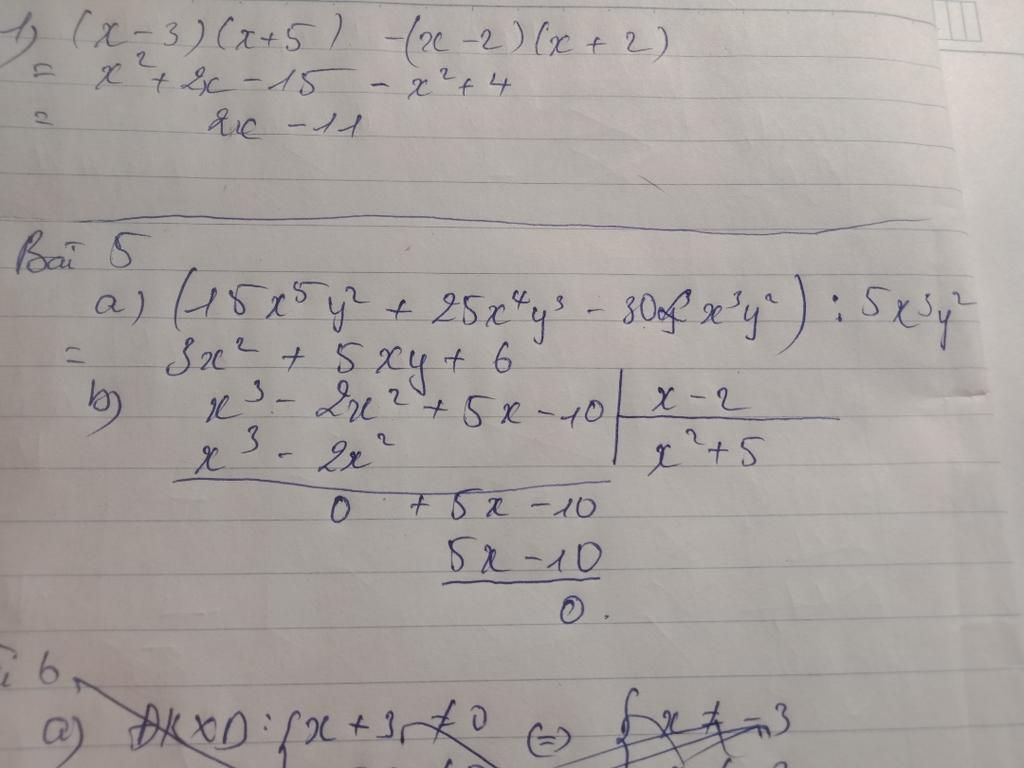 1) (x-3)(x+5) -(x-2)(x+2)
= x² + 2x - 15 - x² + 4
= 2x - 11
Bài 5
a) (15x⁵y² + 25x⁴y³ - 30x³y²) : 5x³y²
= 3x² + 5xy + 6
b) x³ - 2x² + 5x - 10 | x - 2
x³ - 2x² | x² + 5
0 + 5x - 10
5x - 10
0.
6
a) ĐKXĐ: { x + 3 ≠ 0 (=) { x ≠ -3